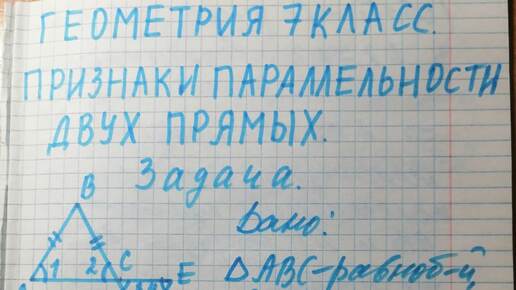 ГЕОМЕТРИЯ 7 КЛАСС.
ПРИЗНАКИ ПАРАЛЛЕЛЬНОСТИ
ДВУХ ПРЯМЫХ.
Задача.
B
Дано:
1 2 C E
△ABC-равноб-й,